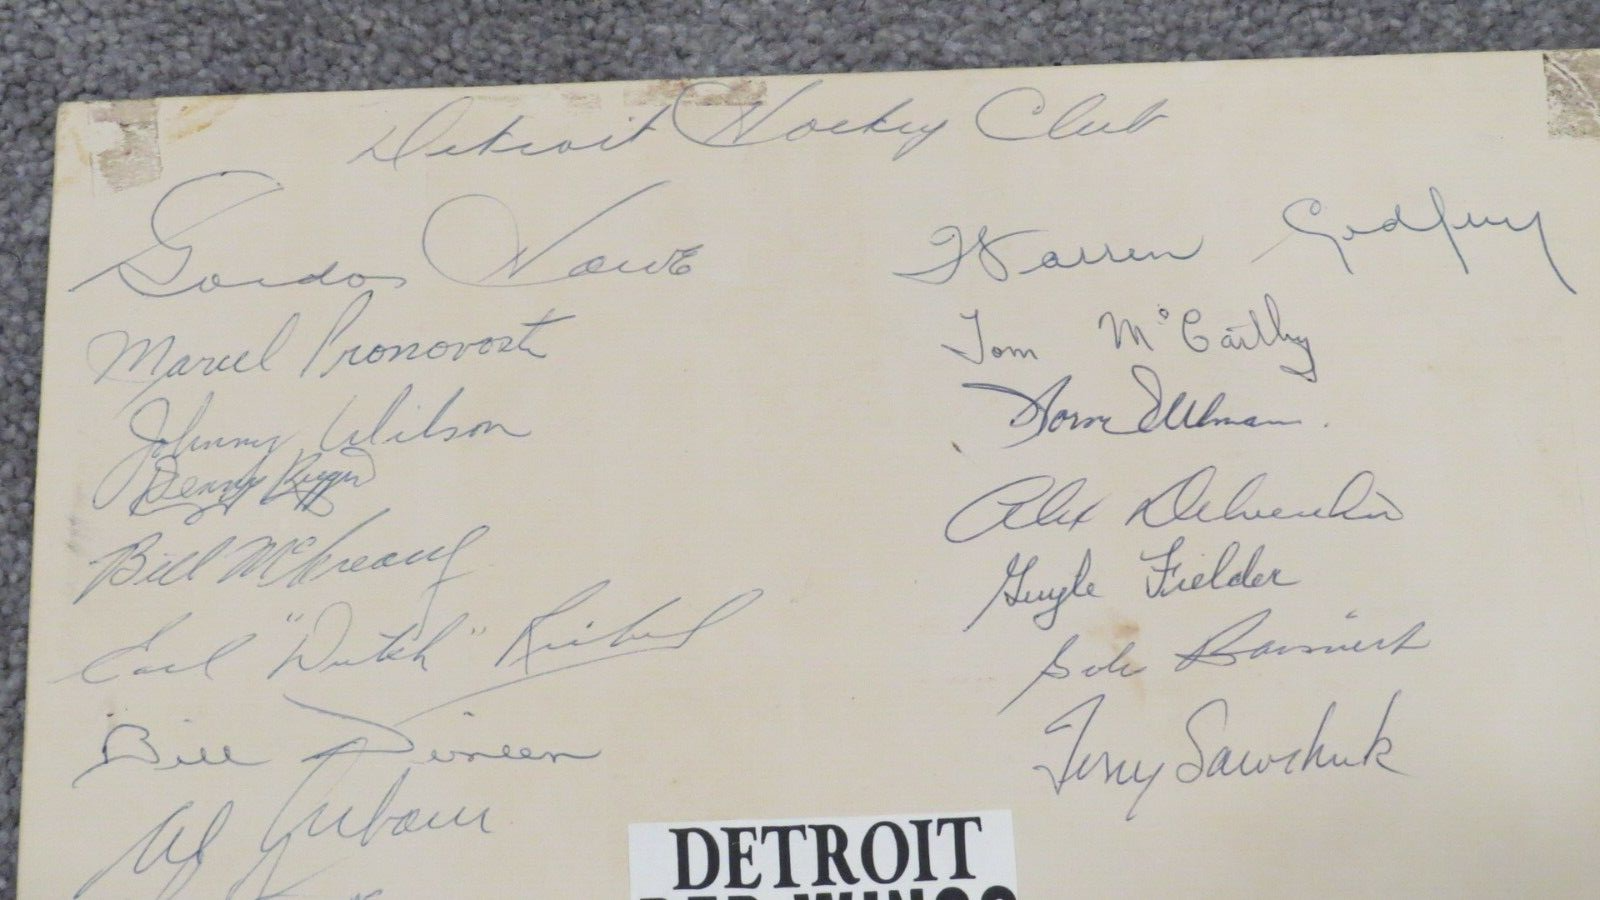 Detroit Hockey Club
Gordon Howe
Marcel Pronovost
Johnny Wilson
Benny
Bill McCreary
Earl "Dutch" Reibel
Bill Dineen
Al Arbour
Warren Godfrey
Tom McCarthy
Norm Ullman.
Alex Delvecchio
Guyle Fielder
Bob
Terry Sawchuk
DETROIT
RED WINGS